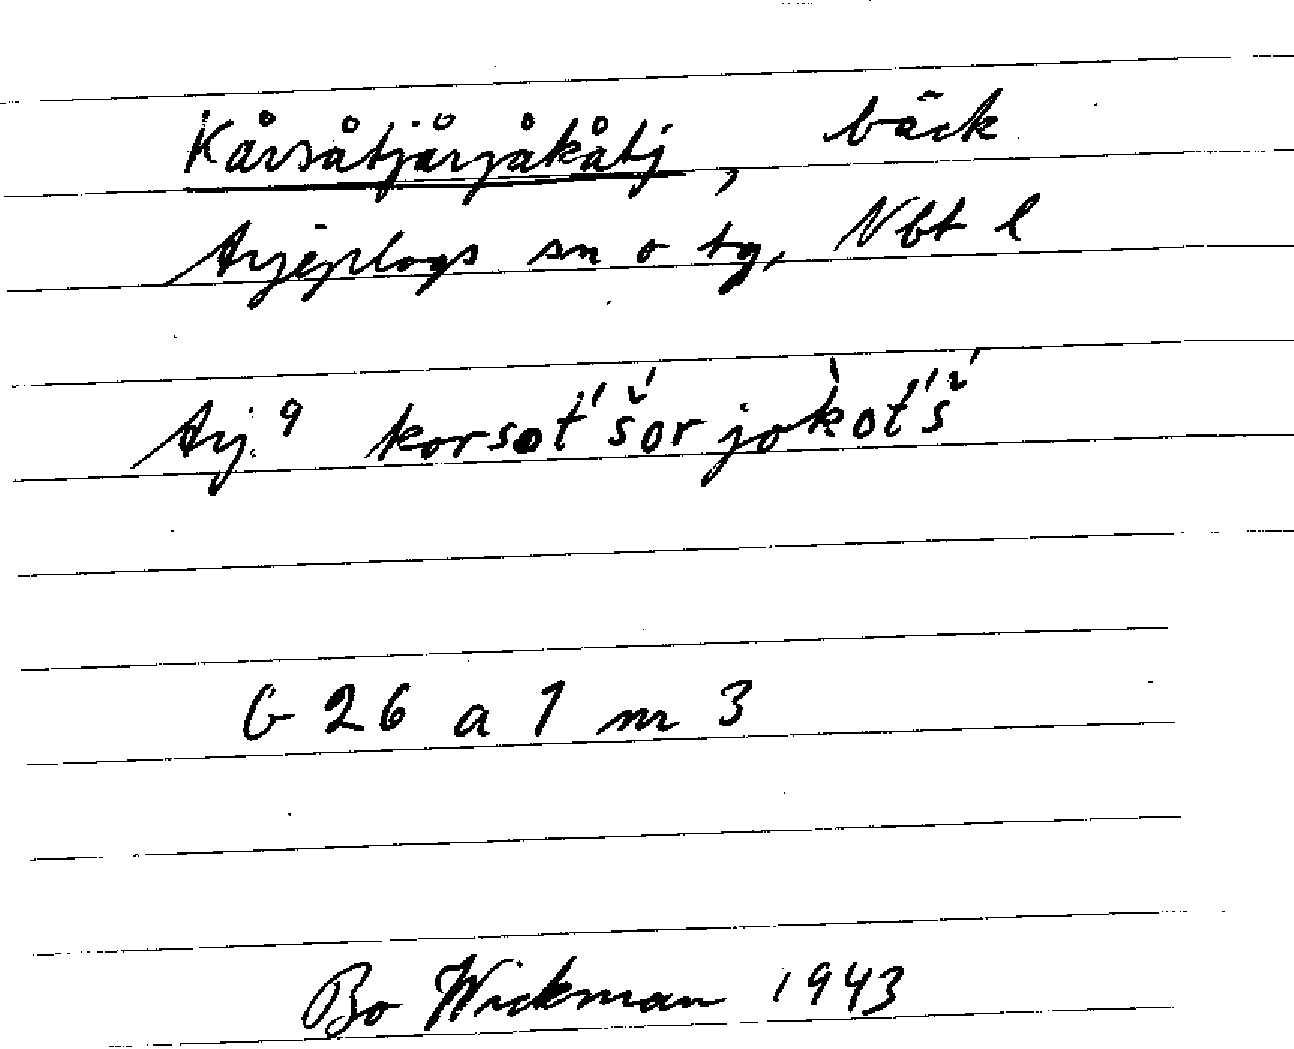 Kårsåtjårjåkåtj, bäck
Arjeplogs sn o tg, Nbt l
Arj. 9 korsot́'š́or jok̀ot́'š́
G 26 a 1 nr 3
Bo Wickman 1943